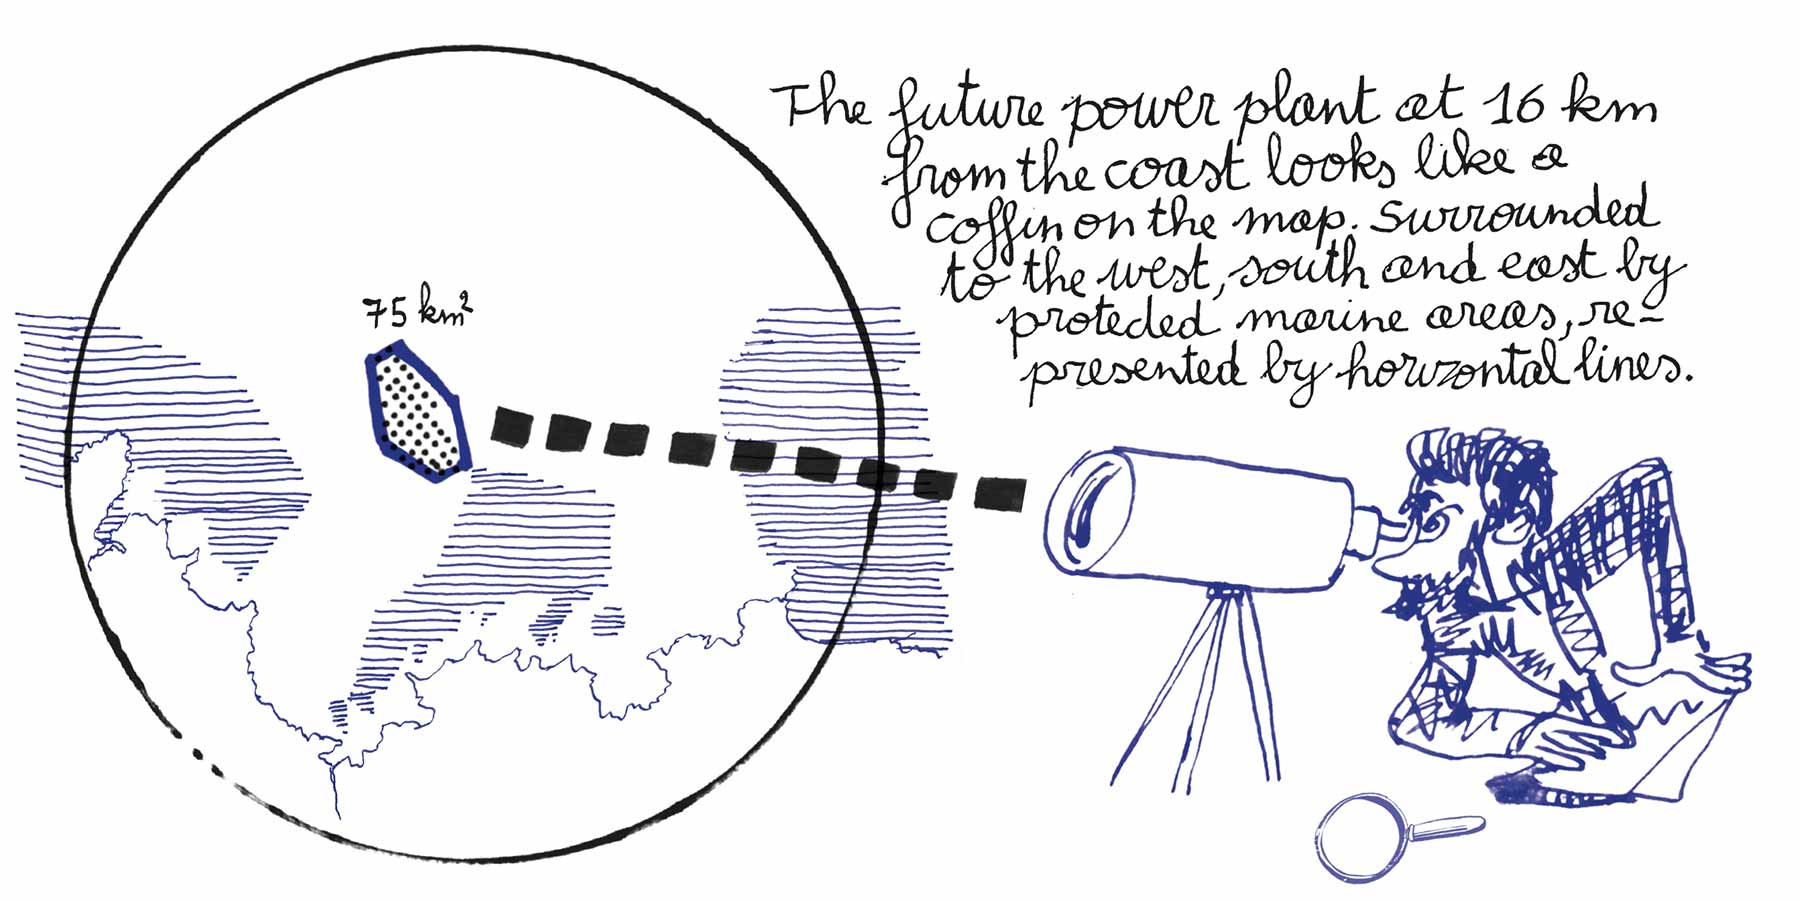 The future power plant at 16 km
from the coast looks like a
coffin on the map. Surrounded
to the west, south and east by
protected marine areas, re-
presented by horizontal lines.
75 km²